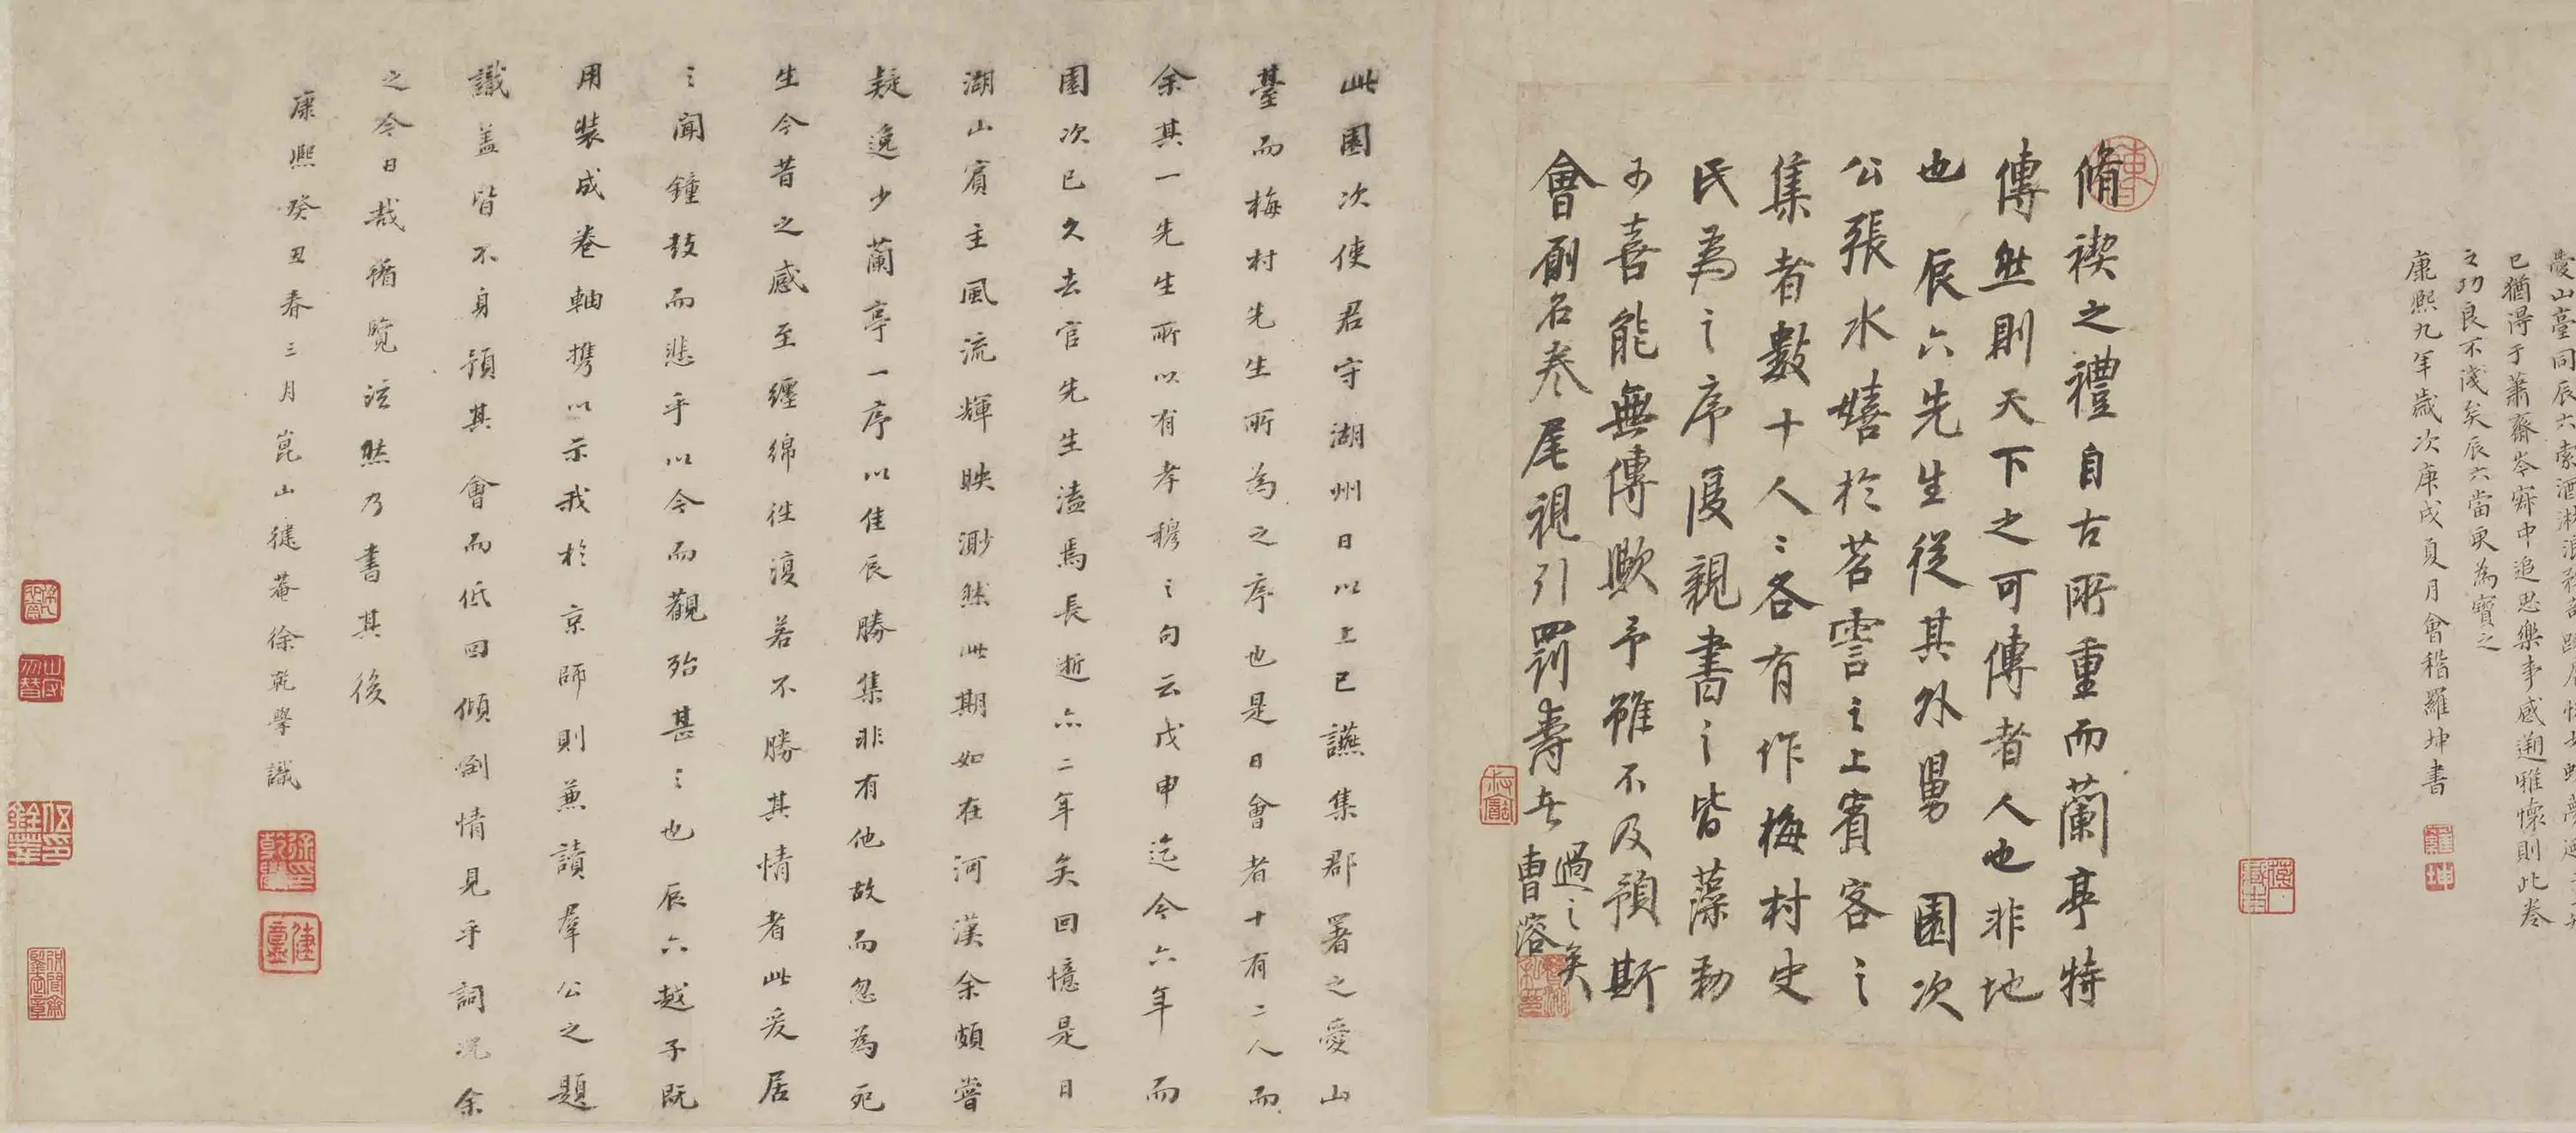 愛山臺同辰六索酒淋漓
已猶得于蕭齋岑寂中追思樂事感遡雅懷則此卷
之功良不淺矣辰六當更為寶之
康熙九年歲次庚戌夏月會稽羅坤書
脩禊之禮自古所重而蘭亭特
傳然則天下之可傳者人也非地
也辰六先生從其外舅園次
公張水嬉於苕霅之上賓客之
集者數十人人各有作梅村史
氏為之序復親書之皆藻勑
可喜能無傳歟予雖不及預斯
會厠名卷尾視引罰壽者
過之矣
曹溶
此園次使君守湖州日以上巳讌集郡署之愛山
臺而梅村先生所為之序也是日會者十有二人而
余其一先生所以有孝穆之句云戊申迄今六年而
園次已久去官先生溘焉長逝亦二年矣回憶是日
湖山賓主風流輝映渺然此期如在河漢余頗嘗
疑逸少蘭亭一序以佳辰勝集非有他故而忽為死
生今昔之感至纏綿往復若不勝其情者此爰居
之聞鐘鼓而悲乎以今而觀殆甚之也辰六越子既
用裝成卷軸携以示我於京師則兼讀羣公之題
識盖皆不身預其會而低回傾倒情見乎詞况余
之今日哉循覽泫然乃書其後
康熙癸丑春三月崑山健菴徐乾學識